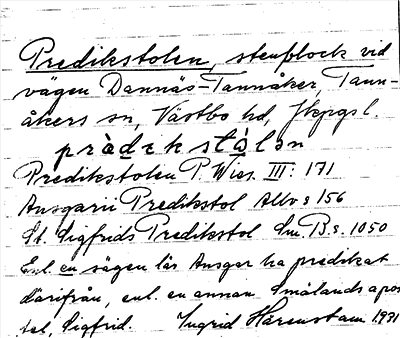 Predikstolen, stenblock vid
vägen Dannäs-Tannåker, Tann-
åkers sn, Västbo hd, Jkpgs l.
Predikstolen P. Wies. III: 171
Ansgarii Predikstol Allv s 156
St. Sigfrids Predikstol Sm. B. s. 1050
Enl. en sägen lär Ansgar ha predikat
därifrån, enl. en annan Smålands apos
tel, Sigfrid. Ingrid Härenstam 1931